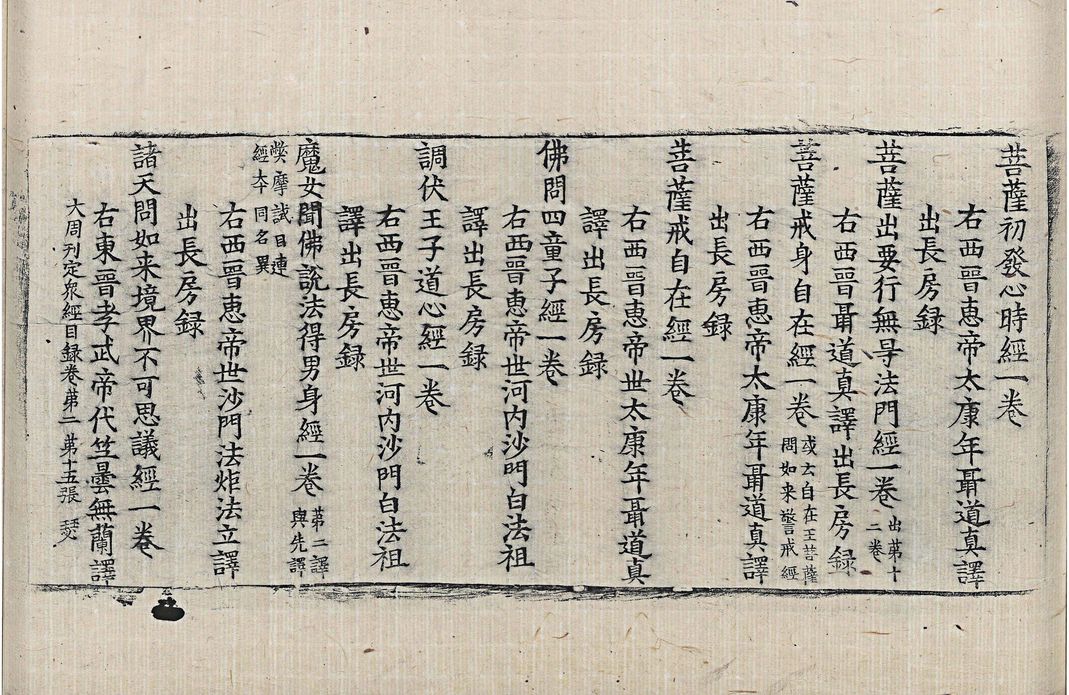 菩薩初發心時經一卷
右西晉惠帝太康年聶道真譯
出長房録
菩薩出要行無㝵法門經一卷 出第十二卷
右西晉聶道真譯出長房録
菩薩戒身自在經一卷 或云自在王菩薩問如来警戒經
右西晉惠帝太康年聶道真譯
出長房録
菩薩戒自在經一卷
右西晉惠帝世太康年聶道真
譯出長房録
佛問四童子經一卷
右西晉惠帝世河内沙門白法祖
譯出長房録
調伏王子道心經一卷
右西晉惠帝世河内沙門白法祖
譯出長房録
魔女聞佛說法得男身經一卷 第二譯與先譯
弊摩試目連經夲同名異
右西晉惠帝世沙門法炬法立譯
出長房録
諸天問如来境界不可思議經一卷
右東晉孝武帝代竺曇無蘭譯
大周刊定衆經目録卷第二 第十五張 瑟